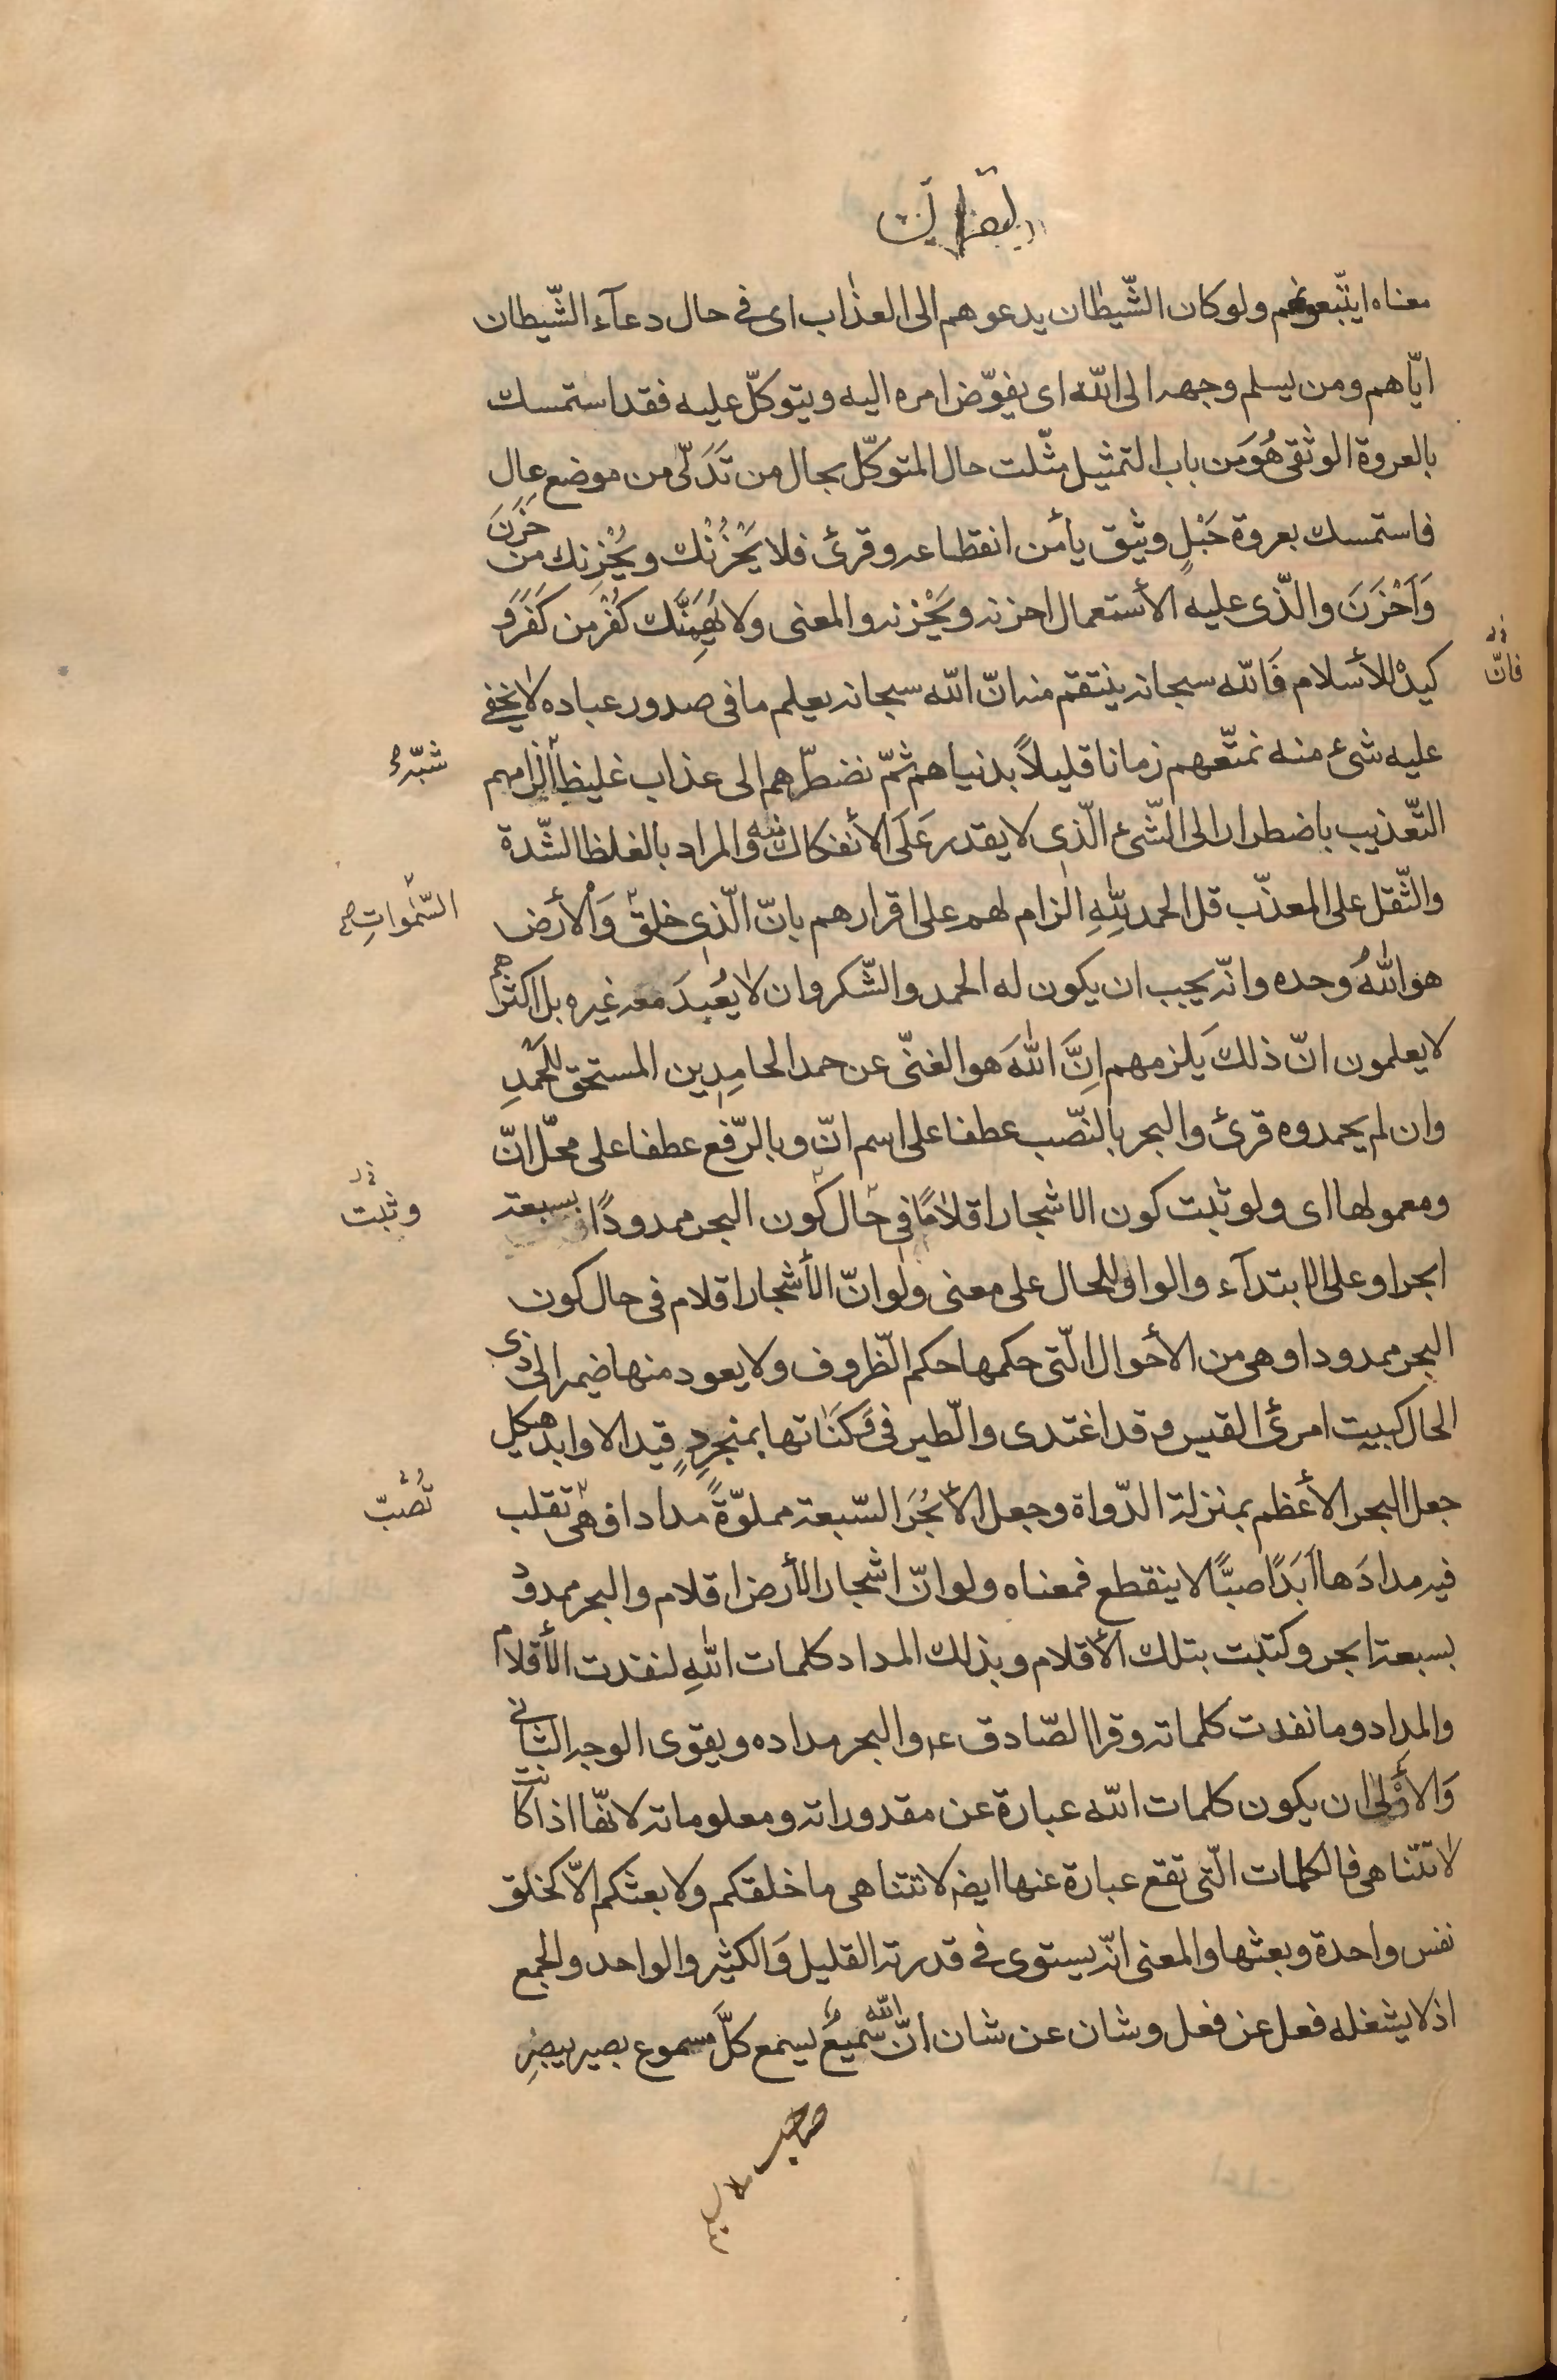 معناه ايتّبعونهم ولو كان الشّيطان يدعوهم الى العذاب اى فى حال دعآء الشّيطان
ايّاهم ومن يسلم وجهه الى اللّه اى يفوّض امره اليه ويتوكّل عليه فقد استمسك
بالعروة الوثقى هُوَ من باب التمثيل مثّلت حال المتوكّل بحال من تَدَلّى من موضع عالٍ
فاستمسك بعروة حَبْلٍ وثيق يأمن انقطاعه وقرئ فلا يَحْزُنْك ويُحْزِنك من حَزَنَ
وَاَحْزَنَ والّذى عليه الأستعمال احزنه ويَحْزنه والمعنى ولا يُهِمَّنَّك كُفْر من كَفَرَ و
كيدُه للأسلام فَاللّه سبحانه ينتقم منه انّ اللّه سبحانه يعلم ما فى صدور عباده لا يخفى
فانّ
عليه شىء منه نمتّعهم زمانا قليلاً بدنياهم ثمّ نضطرّهم الى عذاب غليظ الزامهم
شبّه
التّعذيب باضطرار الى الشّىء الّذى لا يقدر عَلَى الأنفكاك منه والمراد بالغلظ الشّدة
والثّقل على المعذّب قل الحمد للّهِ الزام لهم على اقرارهم بانّ الّذى خلق وَالأرض
السّمٰواتِ
هو اللّهُ وحده وانّه يجب ان يكون له الحمد والشّكر وان لا يُعْبدَ معه غيره بل اكثرهم
لا يعلمون انّ ذلك يَلزمهم اِنَّ اللّهَ هو الغنّى عن حمد الحامِدِين المستحق للحَمْدِ
وان لم يحمدوه قرئ والبحر بالنّصب عطفا على اسم انّ وبالرّفع عطفا على محلّ انّ
ومعمولها اى ولو ثبت كون الاشجار اقلامًا فى حال كون البحر ممدودًا بسبعة
وثبت
ابحر او على الابتدآء والواو للحال على معنى ولو انّ الأشجار اقلام فى حال كون
البحر ممدودا وهى من الأحوال الّتى حكمها حكم الظّروف ولا يعود منها ضمير الى ذى
الحال كبيت امرئ القيس وقد اغتدى والطّير فى وَكَنَاتها بمنجرِدٍ قيد الاوابد هيكل
جعل البحر الأعظم بمنزلة الدّواة وجعل الأبْحُرَ السّبعة مملوّةً مدادا فهى تقلب
تَصُبّ
فيه مدادَها اَبَدًا صبًّا لا ينقطع فمعناه ولو انّ اشجار الأرض اقلام والبحر ممدود
بسبعة ابحر وكتبت بتلك الأقلام وبذلك المداد كلمات اللّهِ لنفدت الأقلام
والمداد وما نفدت كلماته وقرا الصّادق ع‍ والبحر مداده ويقوى الوجه الثانى
وَالأولى ان يكون كلمات اللّه عبارة عن مقدوراته ومعلوماته لانّها اذا كانت
لا تتناهى فالكلمات الّتى تقع عبارة عنها ايضا لا تتناهى ما خلقكم ولا بعثكم الّا كخلق
نفس واحدة وبعثها والمعنى انّه يستوى فى قدرته القليل وَالكثير والواحد والجمع
اذ لا يشغله فعل عن فعل وشان عن شان انّ اللّه سَميعٌ يسمع كلَّ مسموع بصير يبصِر